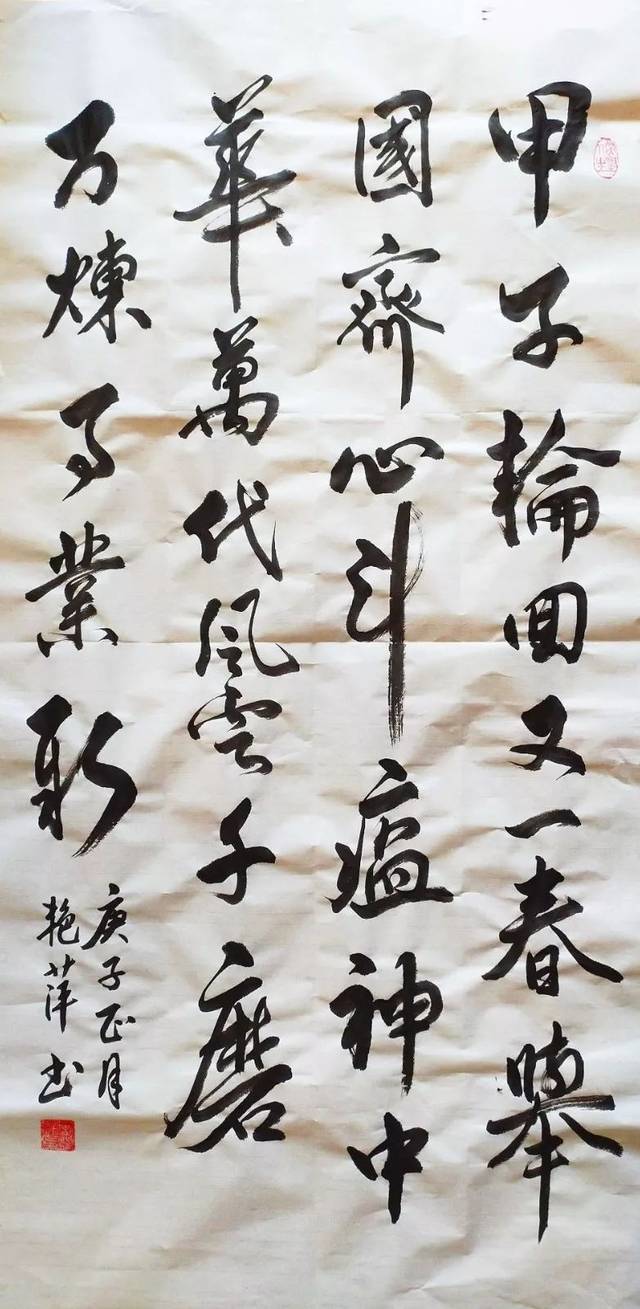 甲子輪回又一春舉
國齊心斗瘟神中
華萬代風雲千磨
万煉事業新
庚子正月
艳萍书